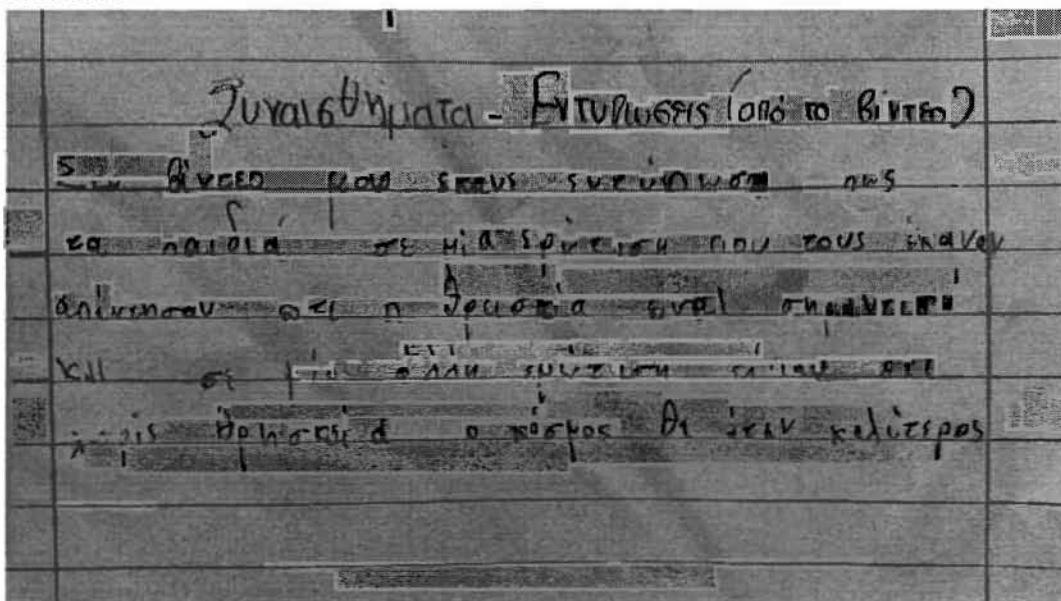 Συναισθήματα - Εντυπώσεις (από το βίντεο)
βίντεο μου έκανε εντύπωση πως
τα παιδιά σε μία ερώτηση που τους έκαναν
απάντησαν οτι η θρισκία είναι
και σε άλλη ερώτηση είπαν οτι
χωρίς θρησκεία ο κόσμος θα ήταν καλίτερος